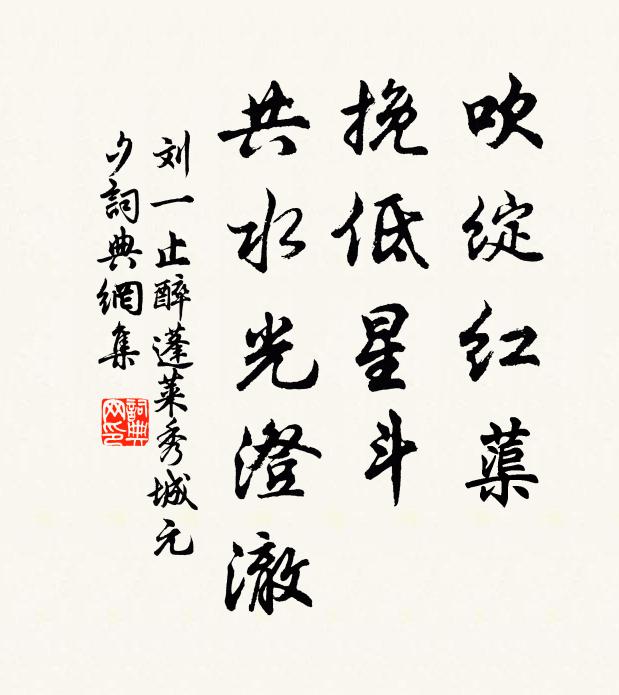 吹绽红蕖
挽低星斗
共水光澄澈
刘一止醉蓬莱秀城元
夕詞典網集
詞典
网印